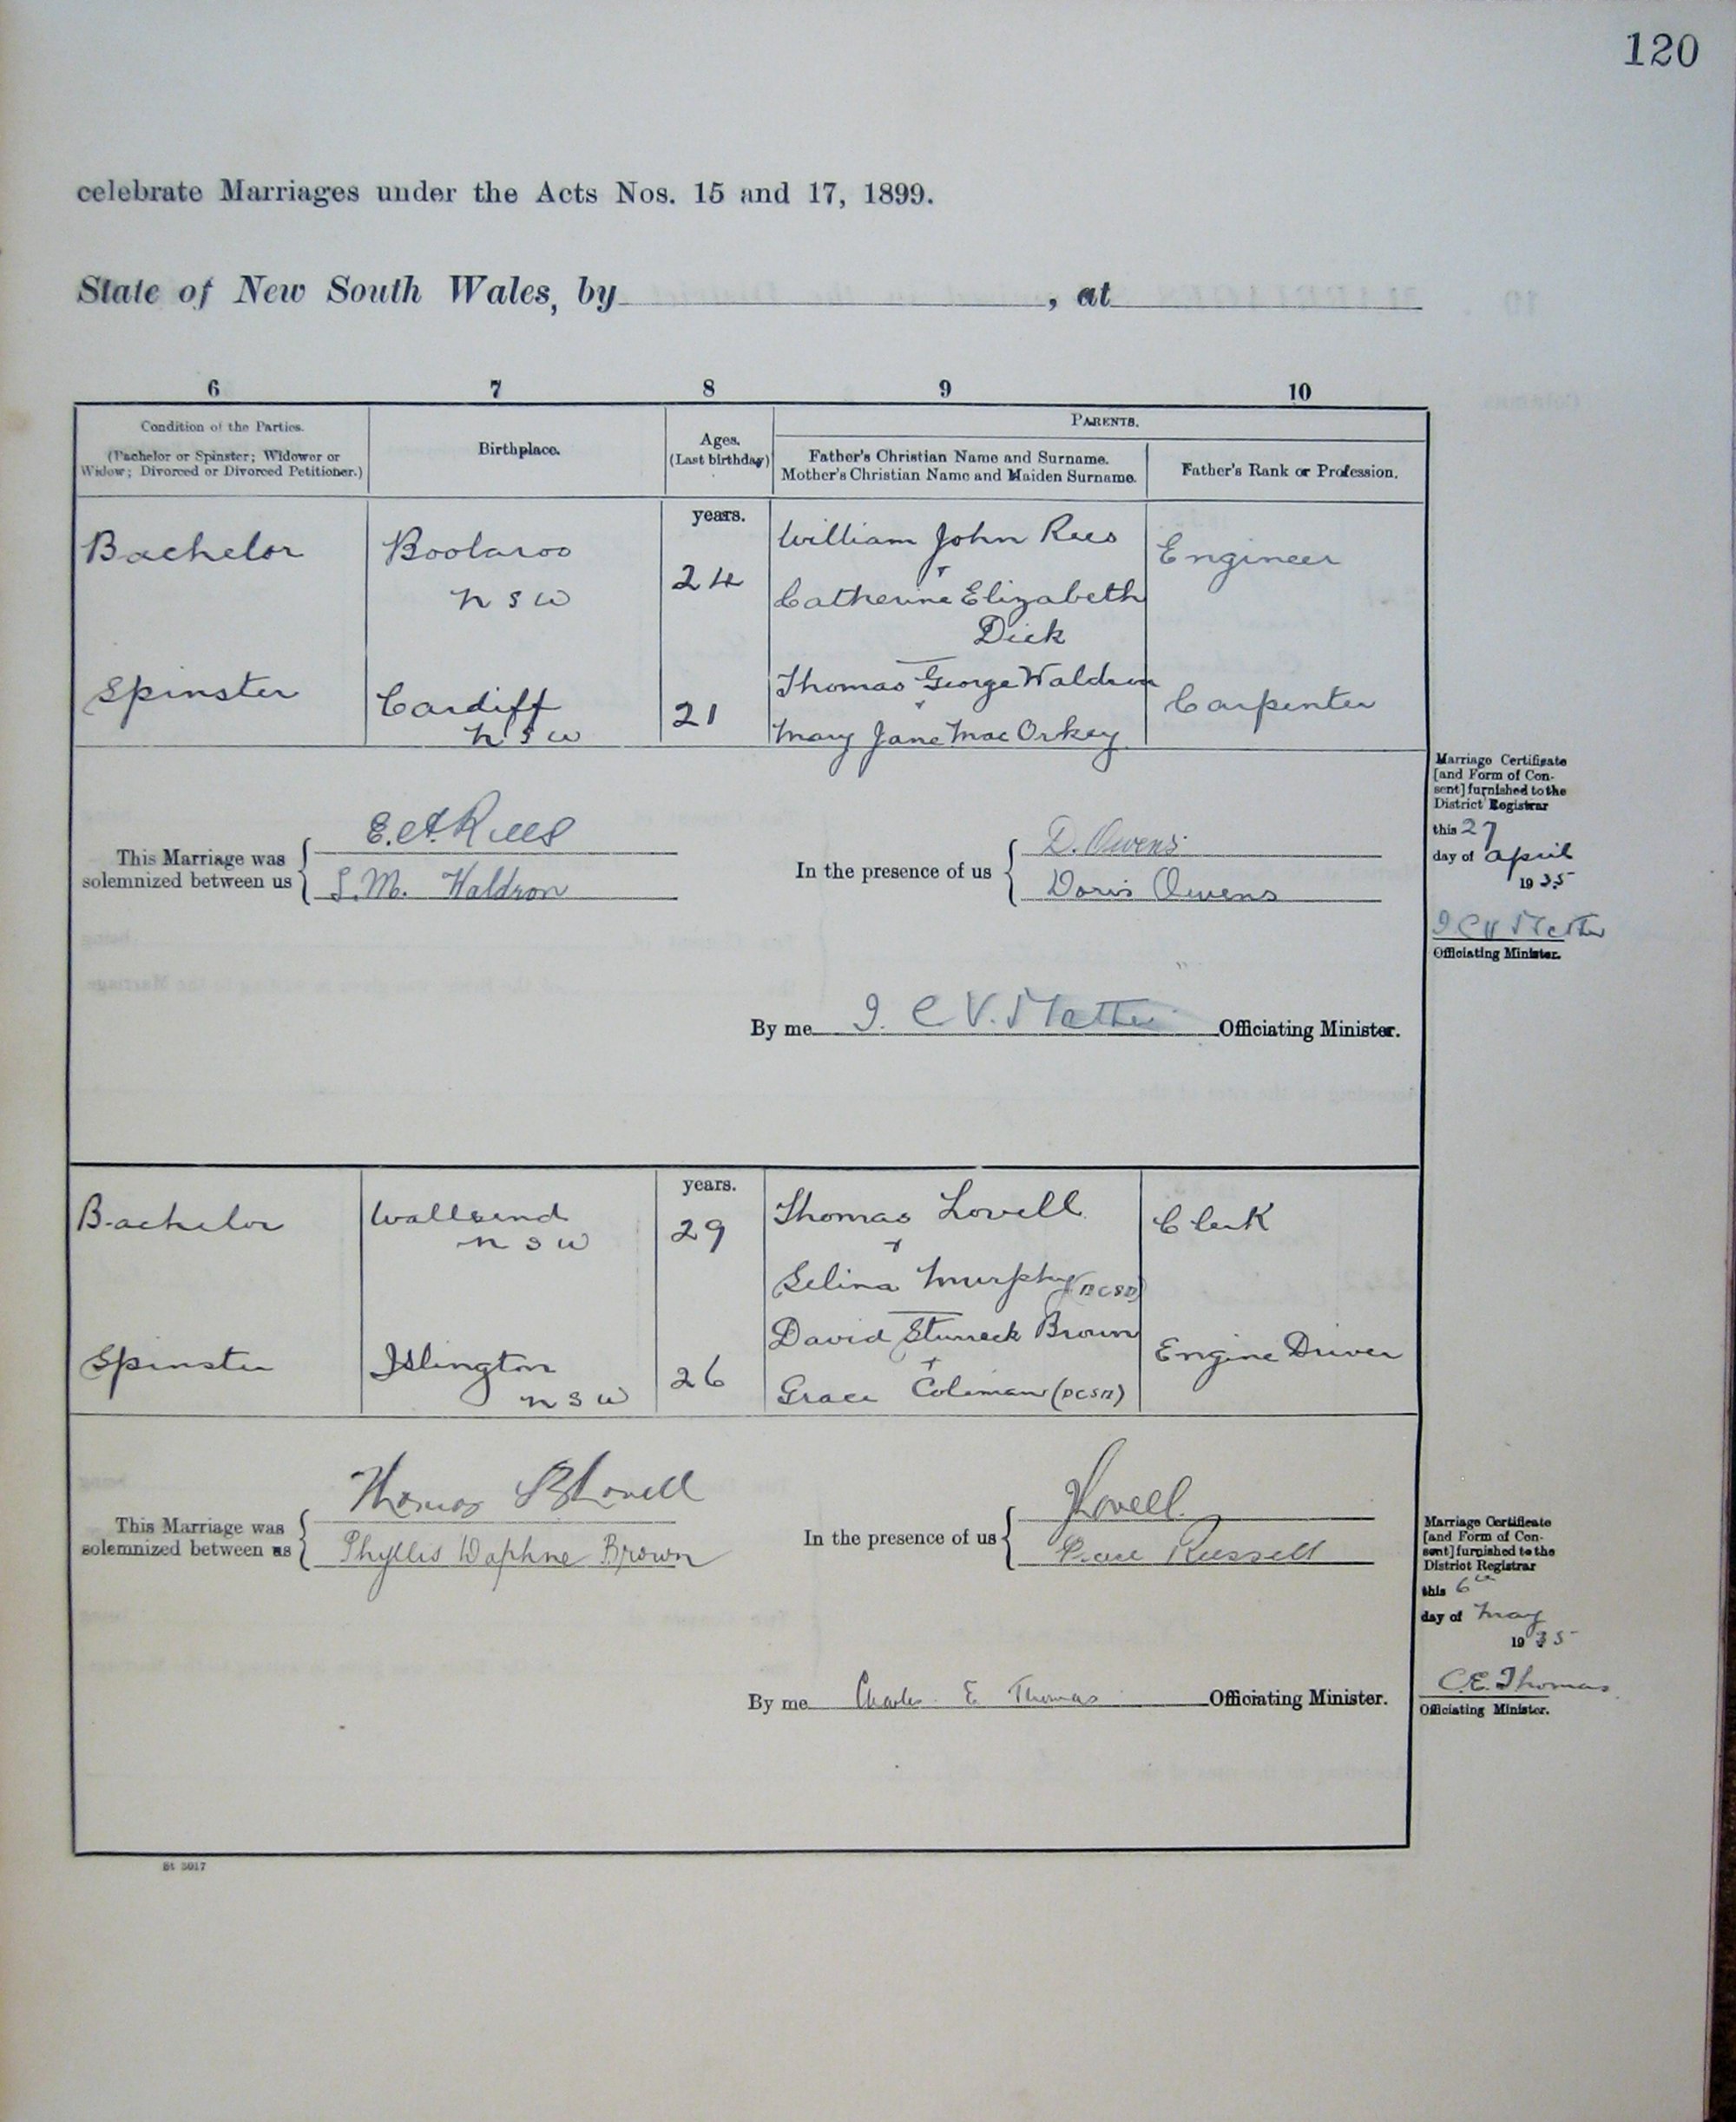 120
celebrate Marriages under the Acts Nos. 15 and 17, 1899.
State of New South Wales, by , at
6 7 8 9 10
Condition of the Parties.
(Bachelor or Spinster; Widower or
Widow; Divorced or Divorced Petitioner.)
Birthplace.
Ages.
(Last birthday)
PARENTS.
Father's Christian Name and Surname.
Mother's Christian Name and Maiden Surname.
Father's Rank or Profession.
years.
Bachelor
Boolaroo
N S W
24
William John Rees
+
Catherine Elizabeth
Dick
Engineer
Spinster
Cardiff
N S W
21
Thomas George Waldron
+
Mary Jane Mac Orkey
Carpenter
This Marriage was
solemnized between us
E. A. Rees
L. M. Waldron
In the presence of us
D. Owens
Doris Owens
Marriage Certificate
[and Form of Con-
sent] furnished to the
District Registrar
this 27
day of April
1935
Officiating Minister.
By me Officiating Minister.
years.
Bachelor
Wallsend
N S W
29
Thomas Lovell
+
Selina Murphy (DCSD)
Clerk
Spinster
Islington
N S W
26
David Brown
+
Grace Coleman (DCSD)
Engine Driver
This Marriage was
solemnized between us
Thomas Lovell
Phyllis Daphne Brown
In the presence of us
Lovell
Russell
Marriage Certificate
[and Form of Con-
sent] furnished to the
District Registrar
this 6th
day of May
1935
C.E. Thomas
Officiating Minister.
By me Charles E Thomas Officiating Minister.
St 5017